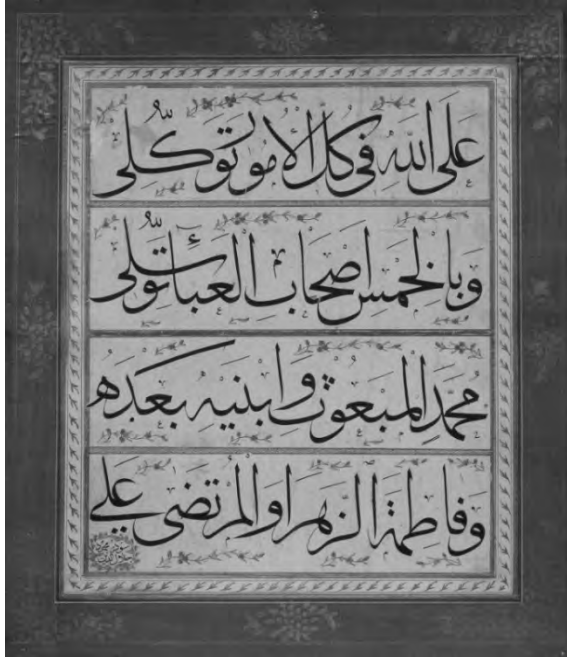 عَلَى اللّٰهِ فِي كُلِّ الْأُمُورِ تَوَكُّلِي
وَبِالْخَمْسِ أَصْحَابِ الْعَبَاءِ تَوَسُّلِي
مُحَمَّدِ الْمَبْعُوثِ وَابْنَيْهِ بَعْدَهُ
وَفَاطِمَةَ الزَّهْرَا وَالْمُرْتَضَى عَلِي